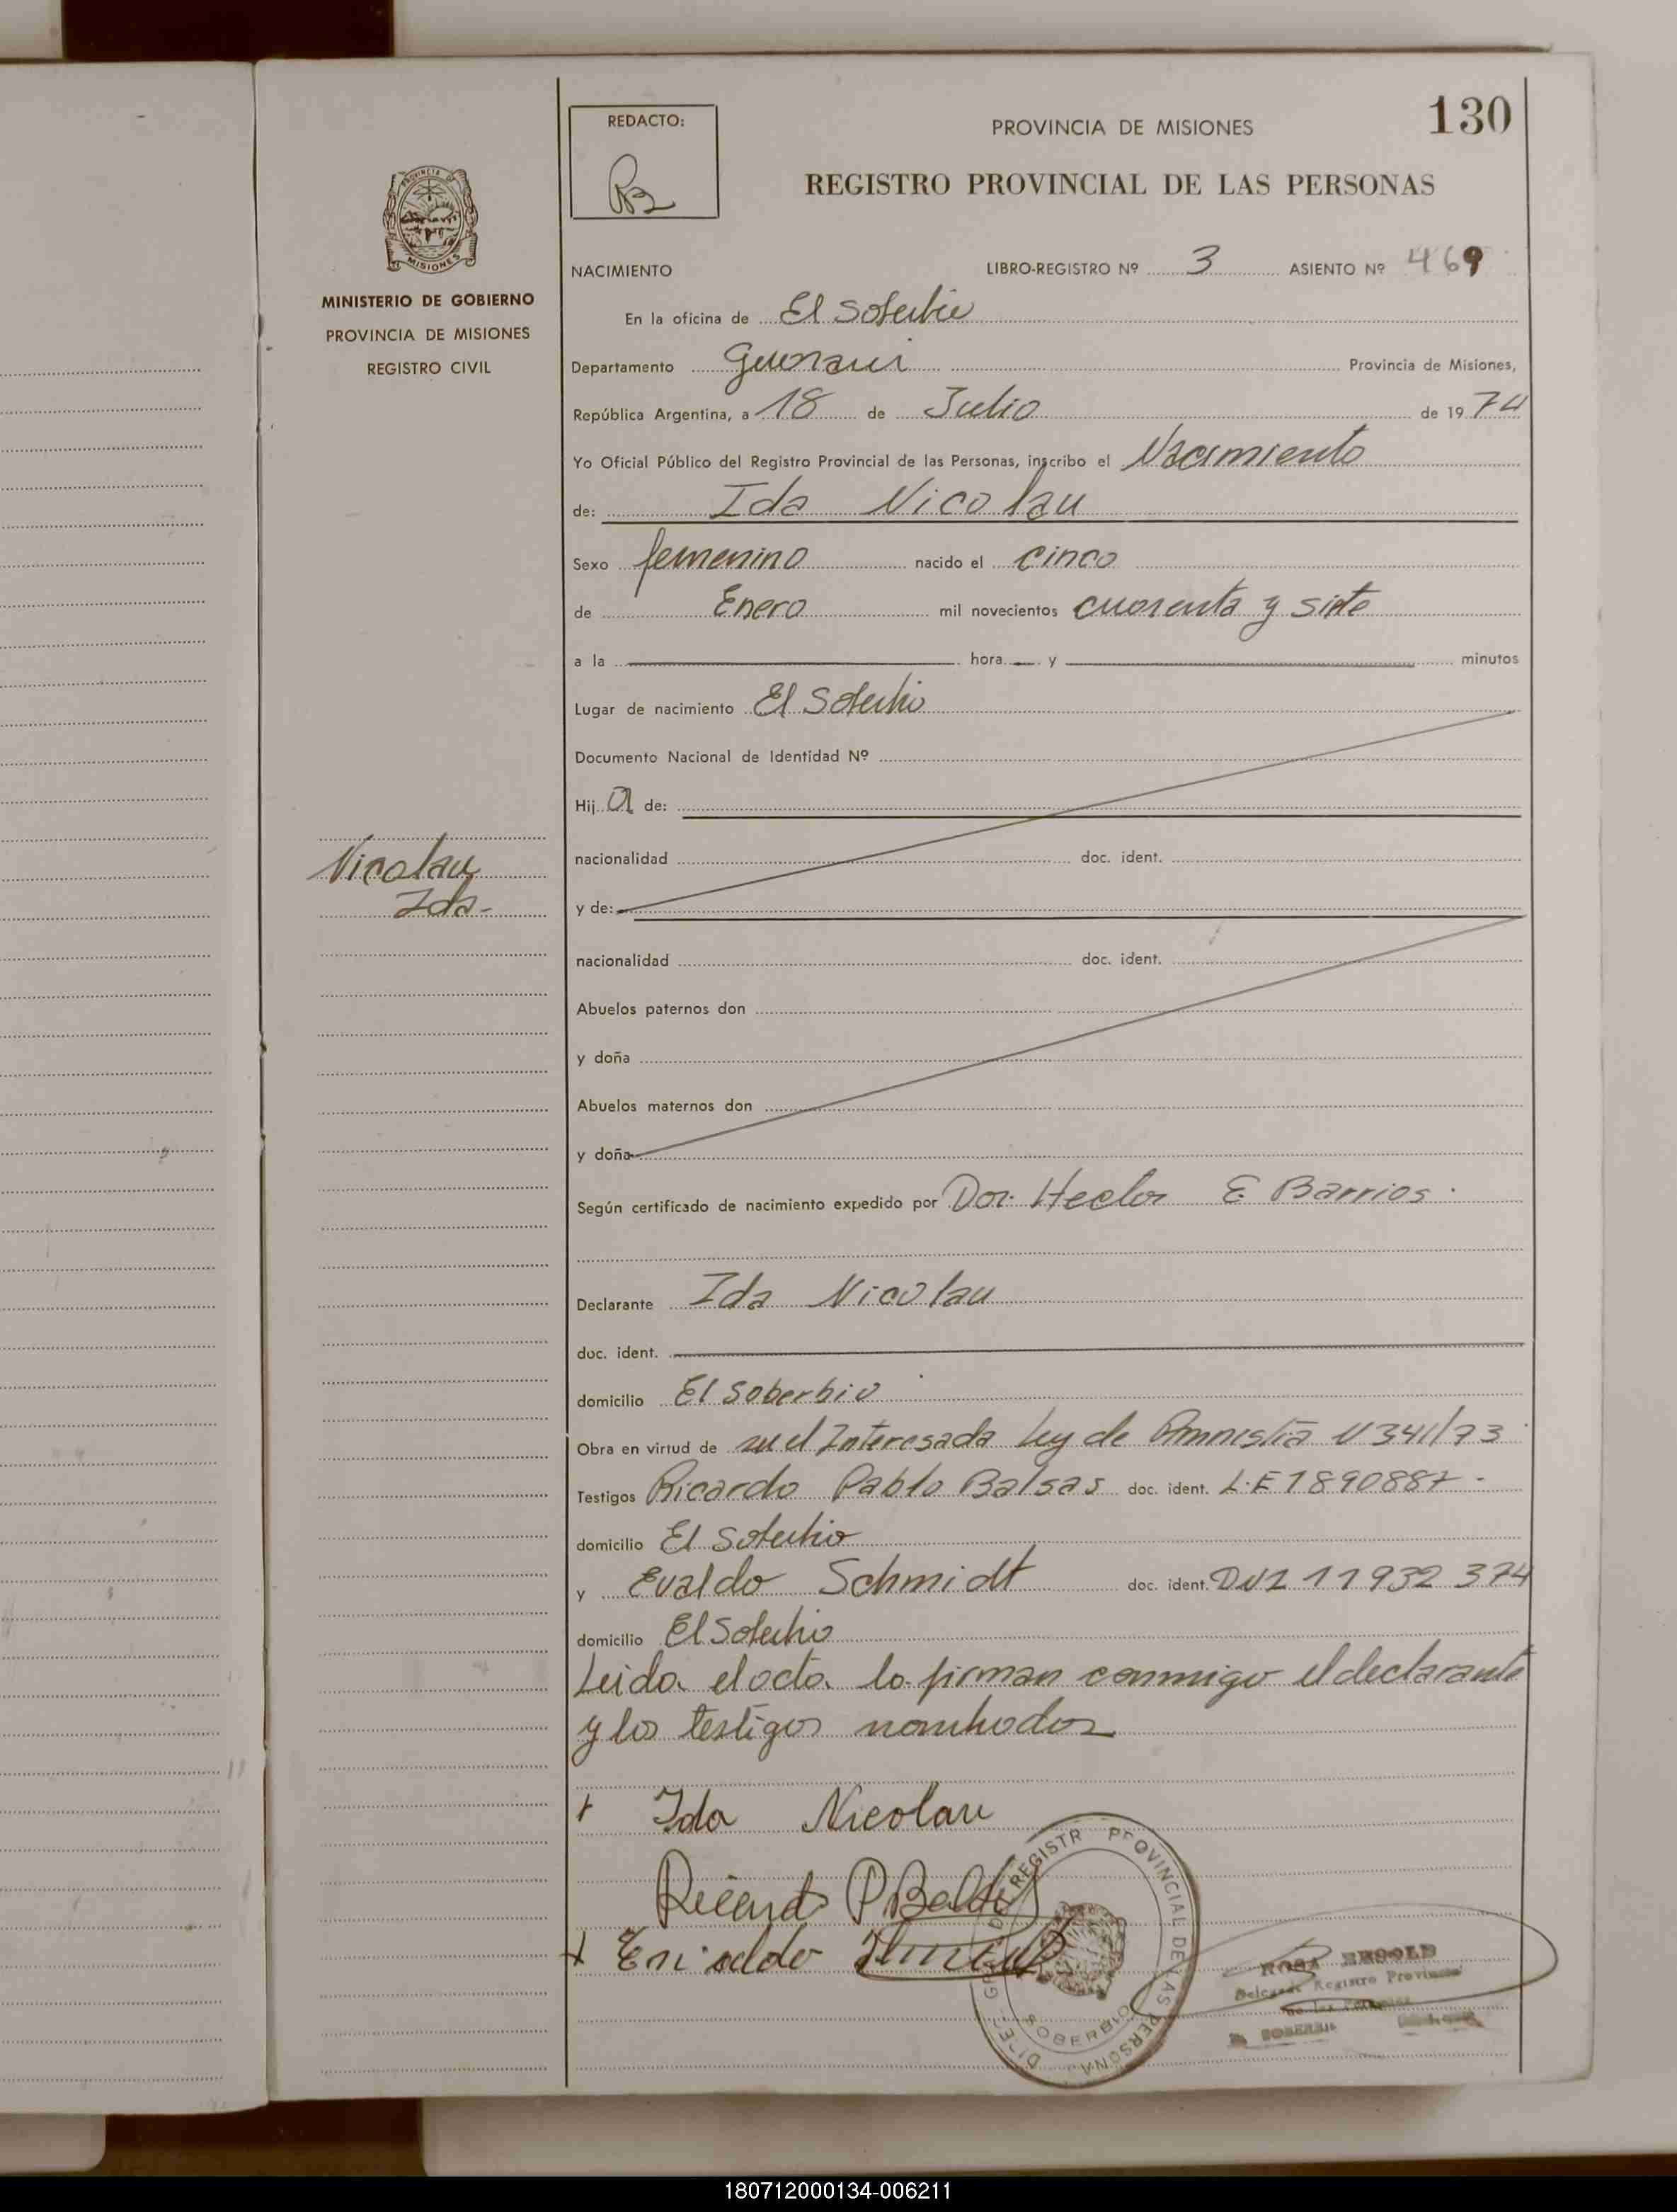 130
REDACTO:
PROVINCIA DE MISIONES
REGISTRO PROVINCIAL DE LAS PERSONAS
PROVINCIA DE
MISIONES
MINISTERIO DE GOBIERNO
PROVINCIA DE MISIONES
REGISTRO CIVIL
NACIMIENTO LIBRO-REGISTRO Nº 3 ASIENTO Nº 469
En la oficina de El Soberbio
Departamento Guarani Provincia de Misiones,
República Argentina, a 18 de Julio de 1974
Yo Oficial Público del Registro Provincial de las Personas, inscribo el Nacimiento
de: Ida Nicolau
Sexo femenino nacido el cinco
de Enero mil novecientos cuarenta y siete
a la hora y minutos
Lugar de nacimiento El Soberbio
Documento Nacional de Identidad Nº
Hija de:
Nicolau
Ida-
nacionalidad doc. ident.
y de:
nacionalidad doc. ident.
Abuelos paternos don
y doña
Abuelos maternos don
y doña
Según certificado de nacimiento expedido por Dor. Hector E. Barrios.
Declarante Ida Nicolau
doc. ident.
domicilio El Soberbio
Obra en virtud de Interesada Ley de Amnistia 341/73
Testigos Ricardo Pablo Balsas doc. ident. L.E 1890887-
domicilio El Soberbio
y Evaldo Schmidt doc. ident. DNI 11932 374
domicilio El Soberbio
Leida el acta la firman conmigo el declarante
y los testigos nombrados
Ida Nicolau
REGISTR PROVINCIAL DE LAS PERSONA
SOBERBIO
ROSA
Registro Provincial
de las Personas
SOBERBIO
180712000134-006211